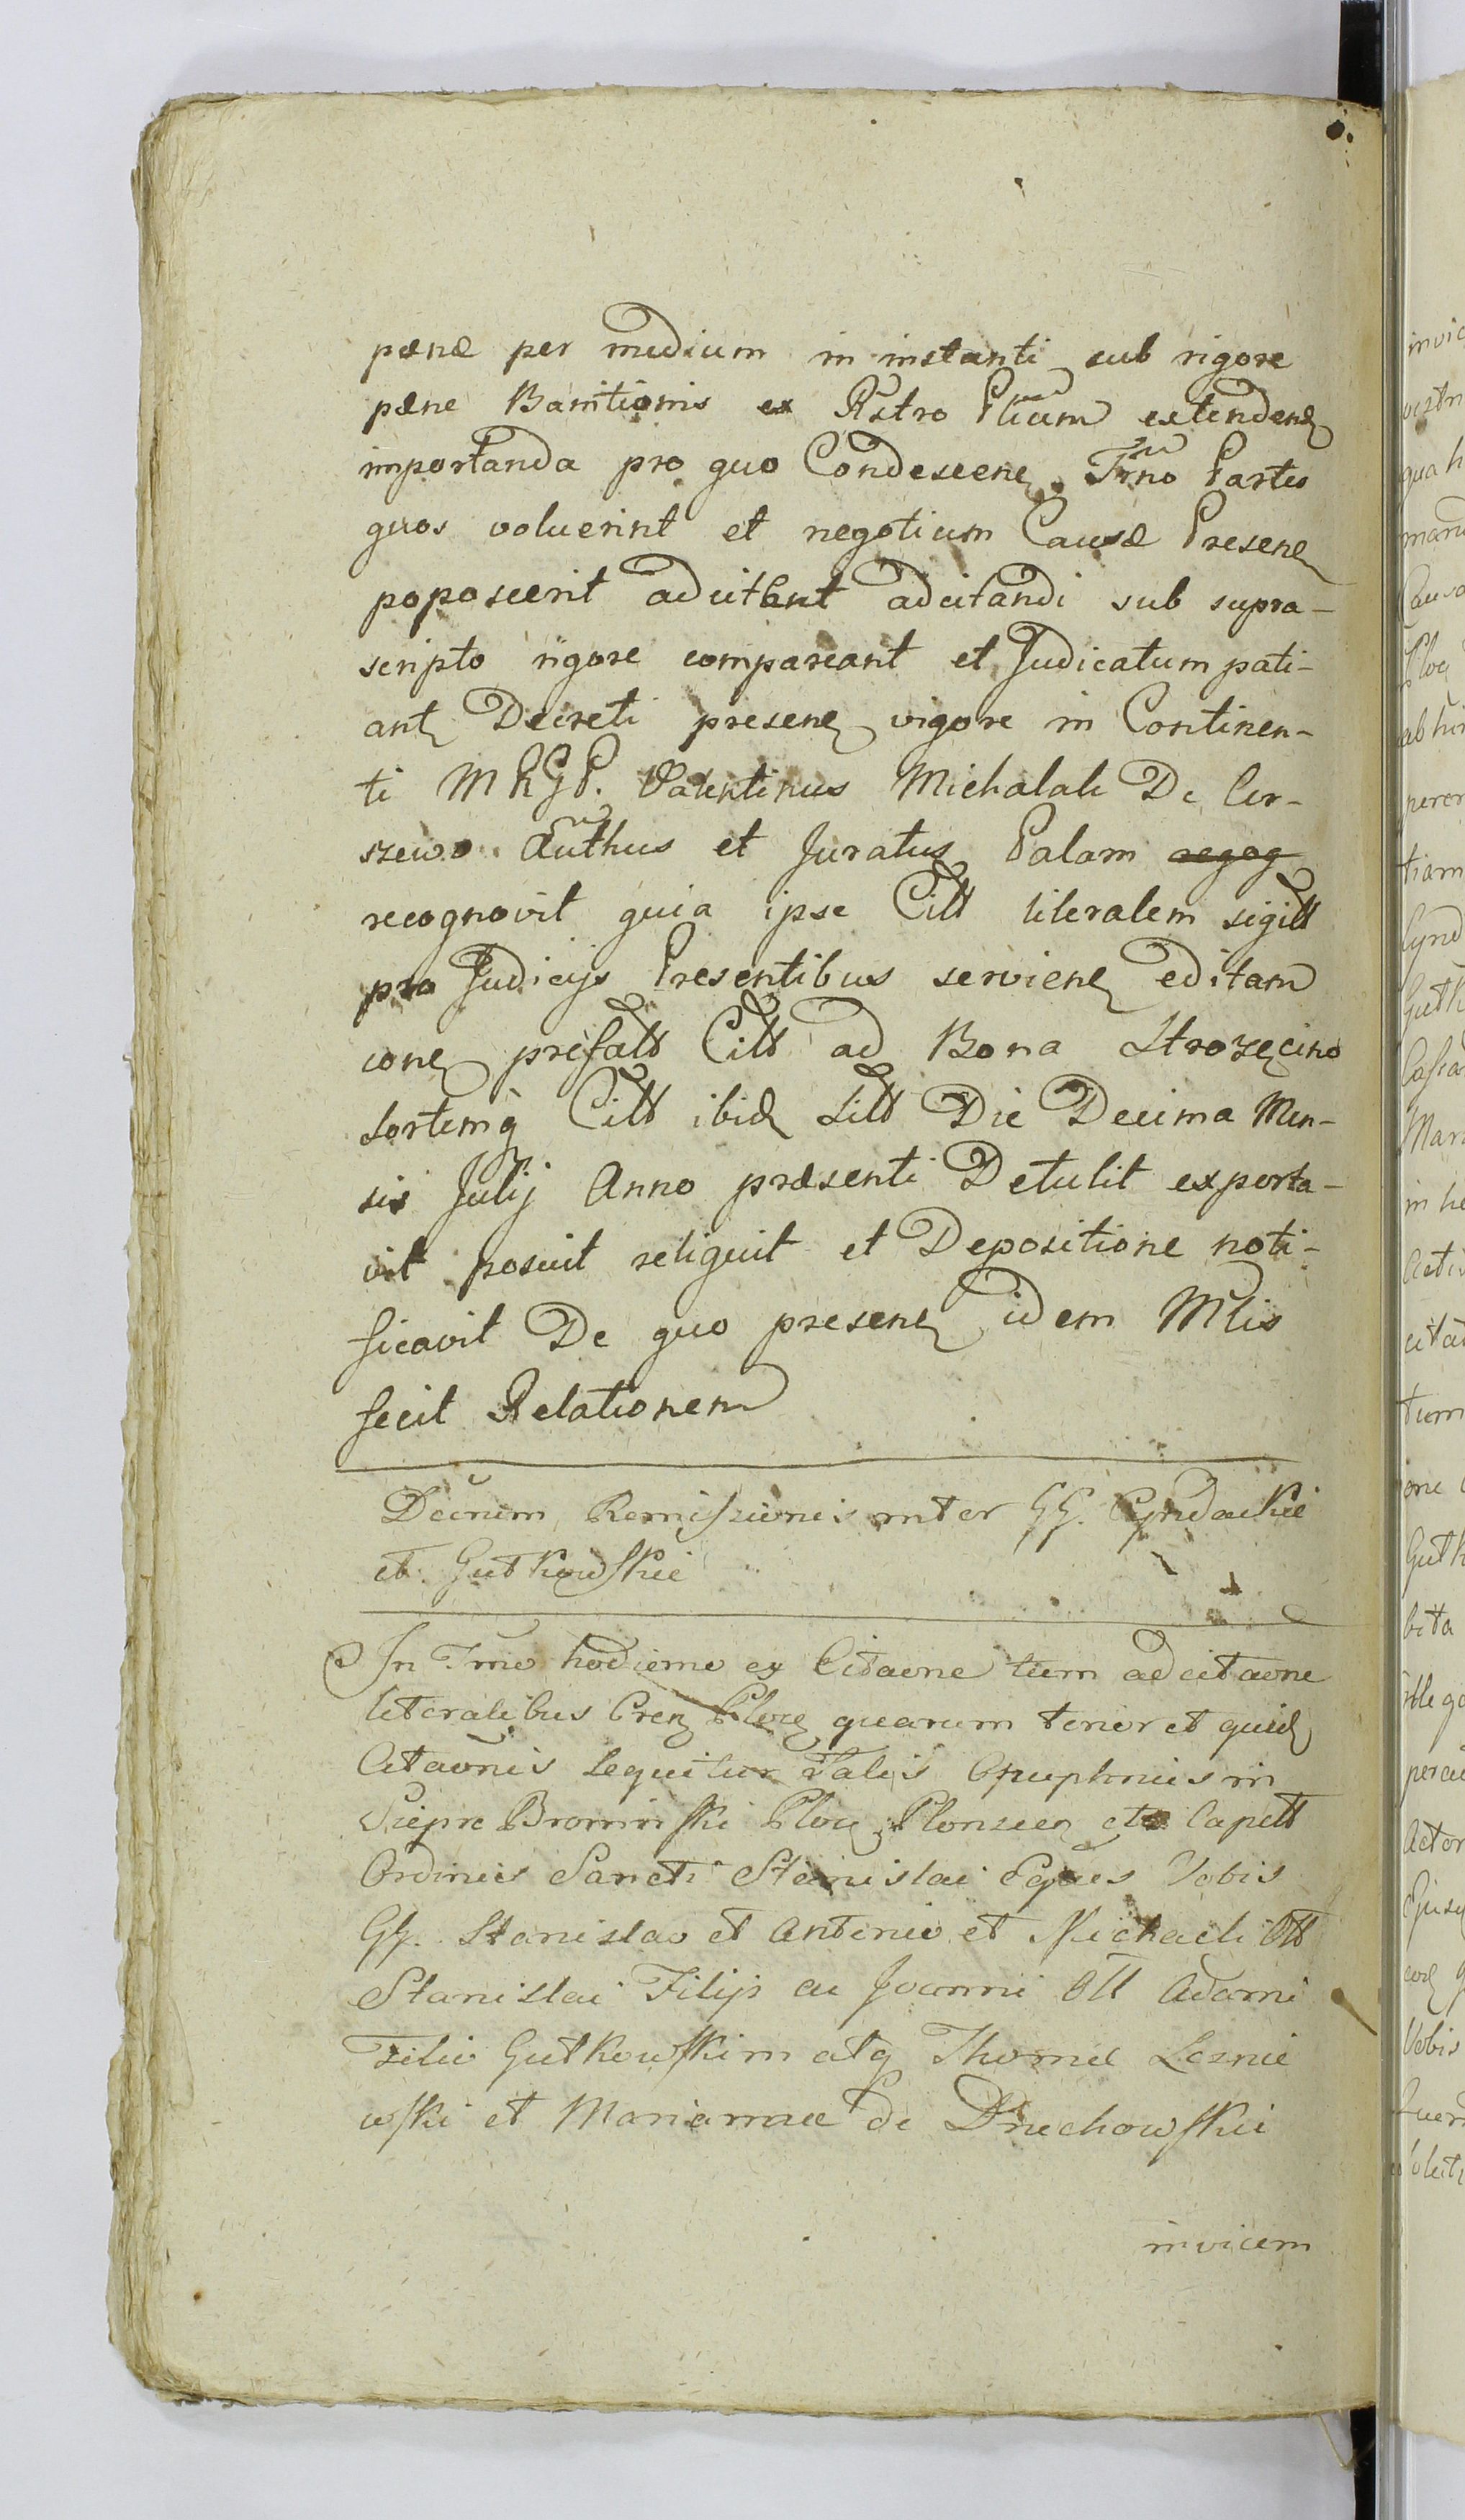 pænæ per medium in instanti sub rigore
pæne Banitionis ex Rstro Plium extendenꝫ
importanda pro quo Condescenꝫ Trno Partes
quos voluerint et negotium Causæ Presenꝫ
poposcerit adcitent adcitandi sub supra-
scripto rigore compareant et Judicatum pati-
antꝫ Decreti presenꝫ vigore in Continen-
ti MRGP. Valentinus Michalak De Cer-
szewo Authus et Juratus Palam regog
recognovit quia ipse Citt literalem sigitt
pro Judicijs Presentibus servienꝫ editam
conꝫ prefatt Citt ad Bona Strozęcino
sortemq̀ Citt ibidꝫ sitt Die Decima Men-
sis Julij Anno præsenti Detulit exporta-
vit posuit reliquit et Depositione noti-
ficavit De quo presenꝫ idem Mlis
fecit Relationem
Decrum Remissionis inter GG. Cyndackie
et Gutkowskie
In Trno hodierno ex Citaone tum adcitaone
literalibus Crenꝫ Plocꝫ quarum tenor et quidꝫ
Citaonis sequitur Talis Onuphrius in
Siepre Brominski Plocꝫ Plonscenꝫ etc Capitt
Ordinis Sancti Stanislai Eques Vobis
GG. Stanislao et Antonio et Michaeli Ott
Stanislai Filijs ac Joanni Ott Adami
Filio Gutkowskim atq Thomæ Lesnie
wski et Mariannæ de Druchowskie
invicem